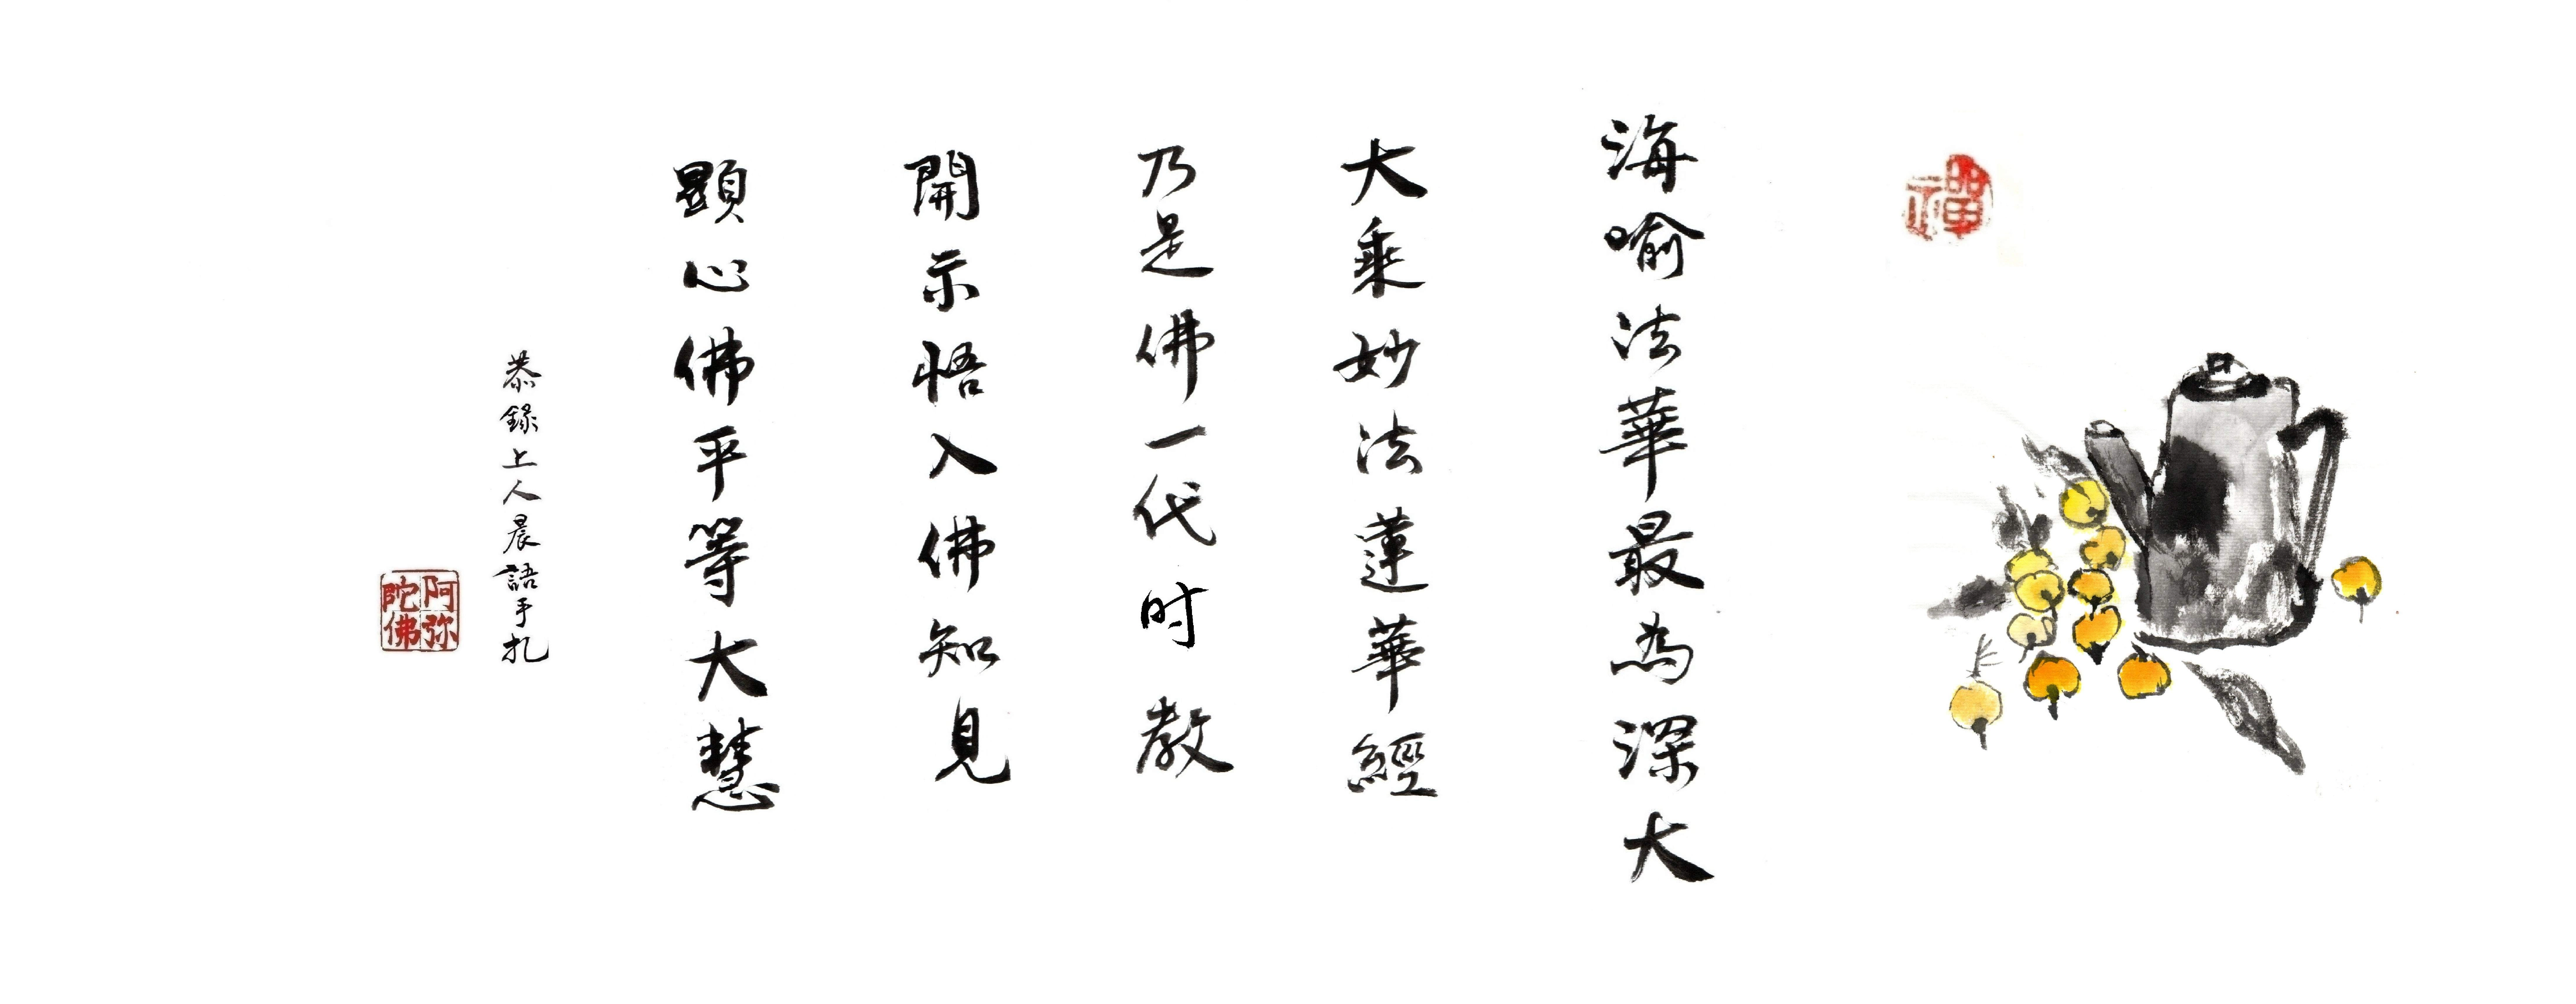 禪
海喻法華最為深大
大乘妙法蓮華經
乃是佛一代时教
開示悟入佛知見
顯心佛平等大慧
恭錄上人晨語手扎
阿弥陀佛